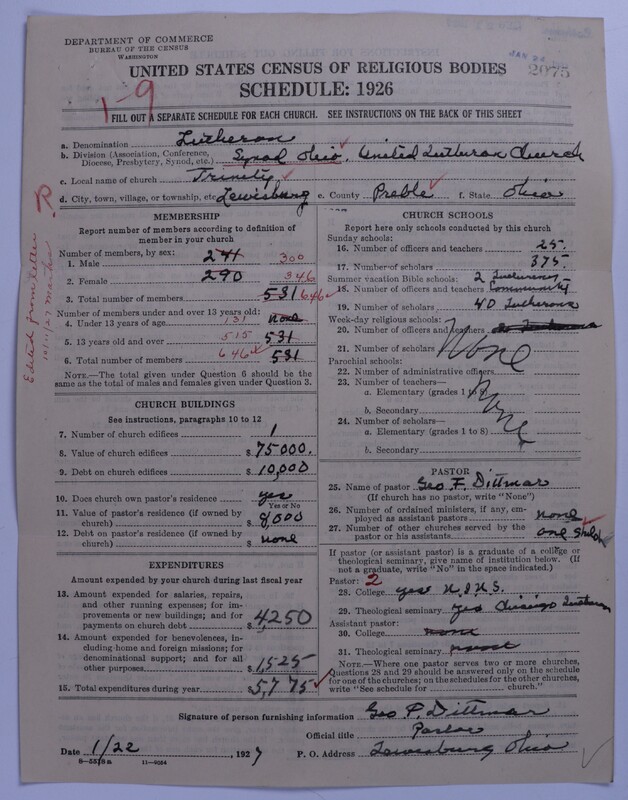 DEPARTMENT OF COMMERCE
BUREAU OF THE CENSUS
WASHINGTON
JAN 24
2075
UNITED STATES CENSUS OF RELIGIOUS BODIES
SCHEDULE: 1926
1-9
FILL OUT A SEPARATE SCHEDULE FOR EACH CHURCH. SEE INSTRUCTIONS ON THE BACK OF THIS SHEET
a. Denomination Lutheran
b. Division (Association, Conference, Diocese, Presbytery, Synod, etc.) Synod Ohio, United Lutheran Church
c. Local name of church Trinity
d. City, town, village, or township, etc. Lewisburg e. County Preble f. State Ohio
Edited from letter
10/11/27
MEMBERSHIP
Report number of members according to definition of
member in your church
Number of members, by sex:
1. Male 241 300
2. Female 290 346
3. Total number of members 531 646
Number of members under and over 13 years old:
4. Under 13 years of age 131 none
5. 13 years old and over 515 531
6. Total number of members 646 531
NOTE.—The total given under Question 6 should be
same as the total of males and females given under Question 3.
CHURCH BUILDINGS
See instructions, paragraphs 10 to 12
7. Number of church edifices 1
8. Value of church edifices $ 75000.
9. Debt on church edifices $ 10,000
10. Does church own pastor's residence yes
Yes or No
11. Value of pastor's residence (if owned by
church) $ 8,000
12. Debt on pastor's residence (if owned by
church) $ none
EXPENDITURES
Amount expended by your church during last fiscal year
13. Amount expended for salaries, repairs,
and other running expenses; for im-
provements or new buildings; and for
payments on church debt $ 4250
14. Amount expended for benevolences, in-
cluding home and foreign missions; for
denominational support; and for all
other purposes $ 1,525
15. Total expenditures during year $ 5,775
CHURCH SCHOOLS
Report here only schools conducted by this church
Sunday schools:
16. Number of officers and teachers 25.
17. Number of scholars 375.
Summer vacation Bible schools: 2
18. Number of officers and teachers Community
19. Number of scholars 40 Lutherans
Week-day religious schools:
20. Number of officers and teachers
21. Number of scholars None
Parochial schools:
22. Number of administrative officers
23. Number of teachers—
a. Elementary (grades 1 to 8)
b. Secondary None
24. Number of scholars—
a. Elementary (grades 1 to 8)
b. Secondary
PASTOR
25. Name of pastor Geo F. Dittmar
(If church has no pastor, write "None")
26. Number of ordained ministers, if any, em-
ployed as assistant pastors none
27. Number of other churches served by the
pastor or his assistants one
If pastor (or assistant pastor) is a graduate of a college or
theological seminary, give name of institution below. (If
not a graduate, write "No" in the space indicated.)
Pastor: 2
28. College yes
29. Theological seminary yes Chicago Lutheran
Assistant pastor:
30. College none
31. Theological seminary none
NOTE.—Where one pastor serves two or more churches,
Questions 28 and 29 should be answered only on the schedule
for one of the churches; on the schedules for the other churches,
write "See schedule for church."
Signature of person furnishing information Geo F. Dittmar
Official title Pastor
Date 1/22, 1927 P. O. Address Lewisburg Ohio
8-5518a 11-9054